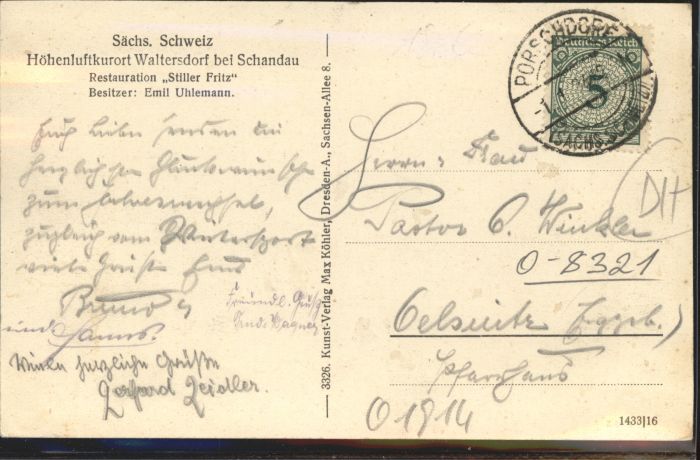 Sächs. Schweiz
Höhenluftkurort Waltersdorf bei Schandau
Restauration „Stiller Fritz"
Besitzer: Emil Uhlemann.
Euch Lieben senden die
herzlichsten Glückwünsche
zum Jahreswechsel,
zugleich vom Wintersport
viele Grüße Eures
Bruno
und Hanns.
Freundl. Grüße
Wagner
herzliche Grüße
Gerhard Zeidler.
3326. Kunst-Verlag Max Köhler, Dresden-A., Sachsen-Allee 8.
PORSCHDORF
(SÄCHS. Schweiz)
Deutsches Reich
5
Herrn u. Frau
Pastor O. Winkler
O-8321
Oelsnitz Erzgeb.
Pfarrhaus
DH
O 1914
1433|16